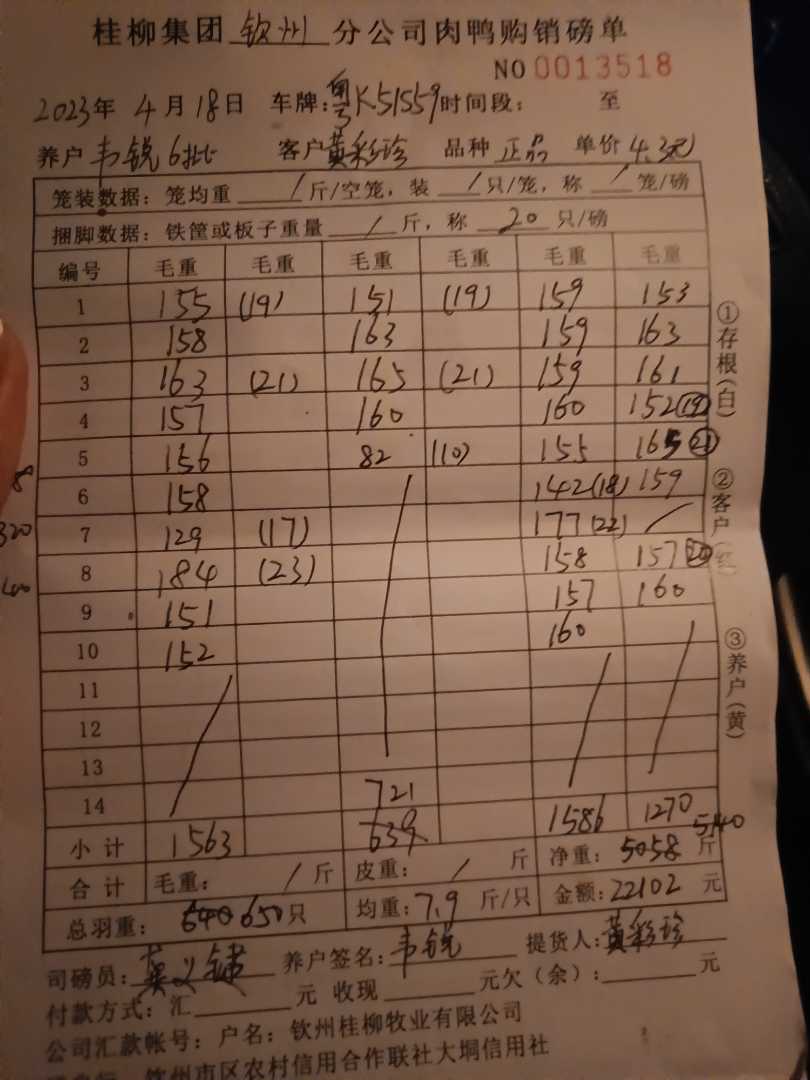 桂柳集团 钦州 分公司肉鸭购销磅单
NO 0013518
2023年 4月18日 车牌:粤K51559 时间段: 至
养户 韦锐6批 客户 黄彩珍 品种 正品 单价 4.3元
笼装数据: 笼均重 / 斤/空笼, 装 / 只/笼, 称 / 笼/磅
捆脚数据: 铁筐或板子重量 / 斤, 称 20 只/磅
编号 毛重 毛重 毛重 毛重 毛重 毛重
1 155 (19) 151 (19) 159 153
2 158 163 159 163
3 163 (21) 165 (21) 159 161
4 157 160 160 152(19)
5 156 82 (10) 155 165(21)
6 158 142(18) 159
7 129 (17) 177(22) /
8 184 (23) 158 157(20)
9 151 157 160
10 152 160
11
12
13
14 721
小计 1563 639 1586 1270
5140
合计 毛重: / 斤 皮重: / 斤 净重: 5058 斤
总羽重: 640 650只 均重: 7.9 斤/只 金额: 22102 元
司磅员: 养户签名: 韦锐 提货人: 黄彩珍
付款方式: 汇 元 收现 元欠(余): 元
公司汇款帐号: 户名: 钦州桂柳牧业有限公司
钦州市区农村信用合作联社大垌信用社
①存根(白)
②客户(红)
③养户(黄)
320